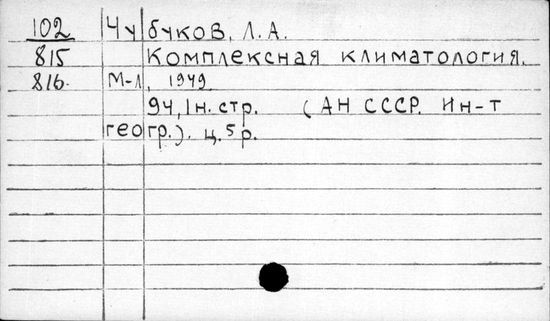 102 Чубуков, Л.А.
815 Комплексная климатология.
816. М-Л, 1949.
94,1н. стр. (АН СССР. Ин-т
геогр.). ц. 5 р.